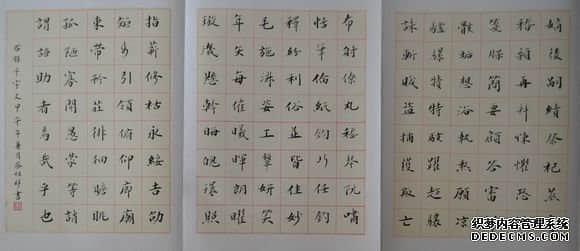 嫡後嗣續祭祀蒸嘗
稽顙再拜悚懼恐惶
箋牒簡要顧答審詳
骸垢想浴執熱願涼
驢騾犢特駭躍超驤
誅斬賊盜捕獲叛亡
布射僚丸嵇琴阮嘯
恬筆倫紙鈞巧任釣
釋紛利俗並皆佳妙
毛施淑姿工顰妍笑
年矢每催曦暉朗曜
璇璣懸斡晦魄環照
指薪修祜永綏吉劭
矩步引領俯仰廊廟
束帶矜莊徘徊瞻眺
孤陋寡聞愚蒙等誚
謂語助者焉哉乎也
右録千字文甲午年夏月書
织梦内容管理系统
DEDECMS.COM